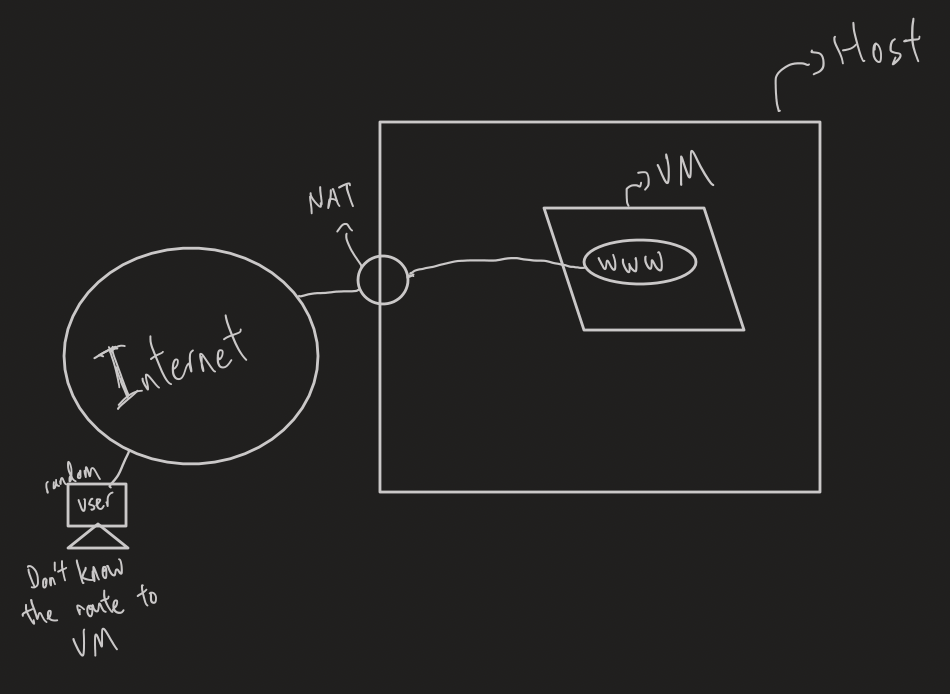 Host
VM
NAT
www
Internet
random
user
Don't know
the route to
VM